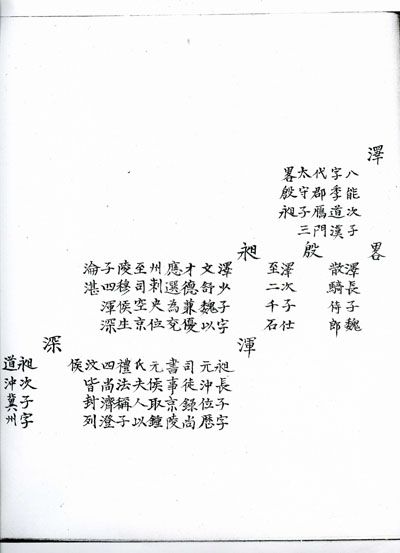 澤
八能次子
字季道漢
代郡鴈門
太守子三
畧殷昶
畧
澤長子魏
散騎侍郎
殷
澤次子仕
至二千石
昶
澤少子字
文舒魏以
才德兼優
應選為兗
州刺史位
至司空京
陵穆侯生
子四渾深
淪湛
渾
昶長子字
元沖位歷
司徒錄尚
書事京陵
元侯取鍾
氏夫人以
禮法稱子
四尚濟澄
汶皆封列
侯
深
昶次子字
道沖冀州